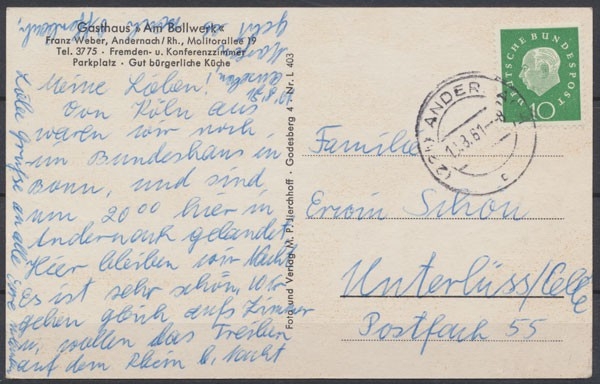 Gasthaus »Am Bollwerk«
Franz Weber, Andernach/Rh., Molitorallee 19
Tel. 3775 · Fremden- u. Konferenzzimmer
Parkplatz · Gut bürgerliche Küche
Meine Lieben!
Von Köln aus
waren wir noch
im Bundeshaus in
Bonn, und sind
um 20 00 hier in
Andernach gelandet.
Hier bleiben wir Nacht
Es ist sehr schön. Wir
gehen gleich aufs Zimmer
u. wollen das Treiben
auf dem Rhein b. Nacht
Liebe Grüße an alle Eure
Foto und Verlag M. P. Jierchhoff · Godesberg 4 · Nr. L 403
DEUTSCHE BUNDESPOST
10
ANDER
.3.61
c
Familie
Erwin Schön
Unterlüss/Celle
Postfach 55